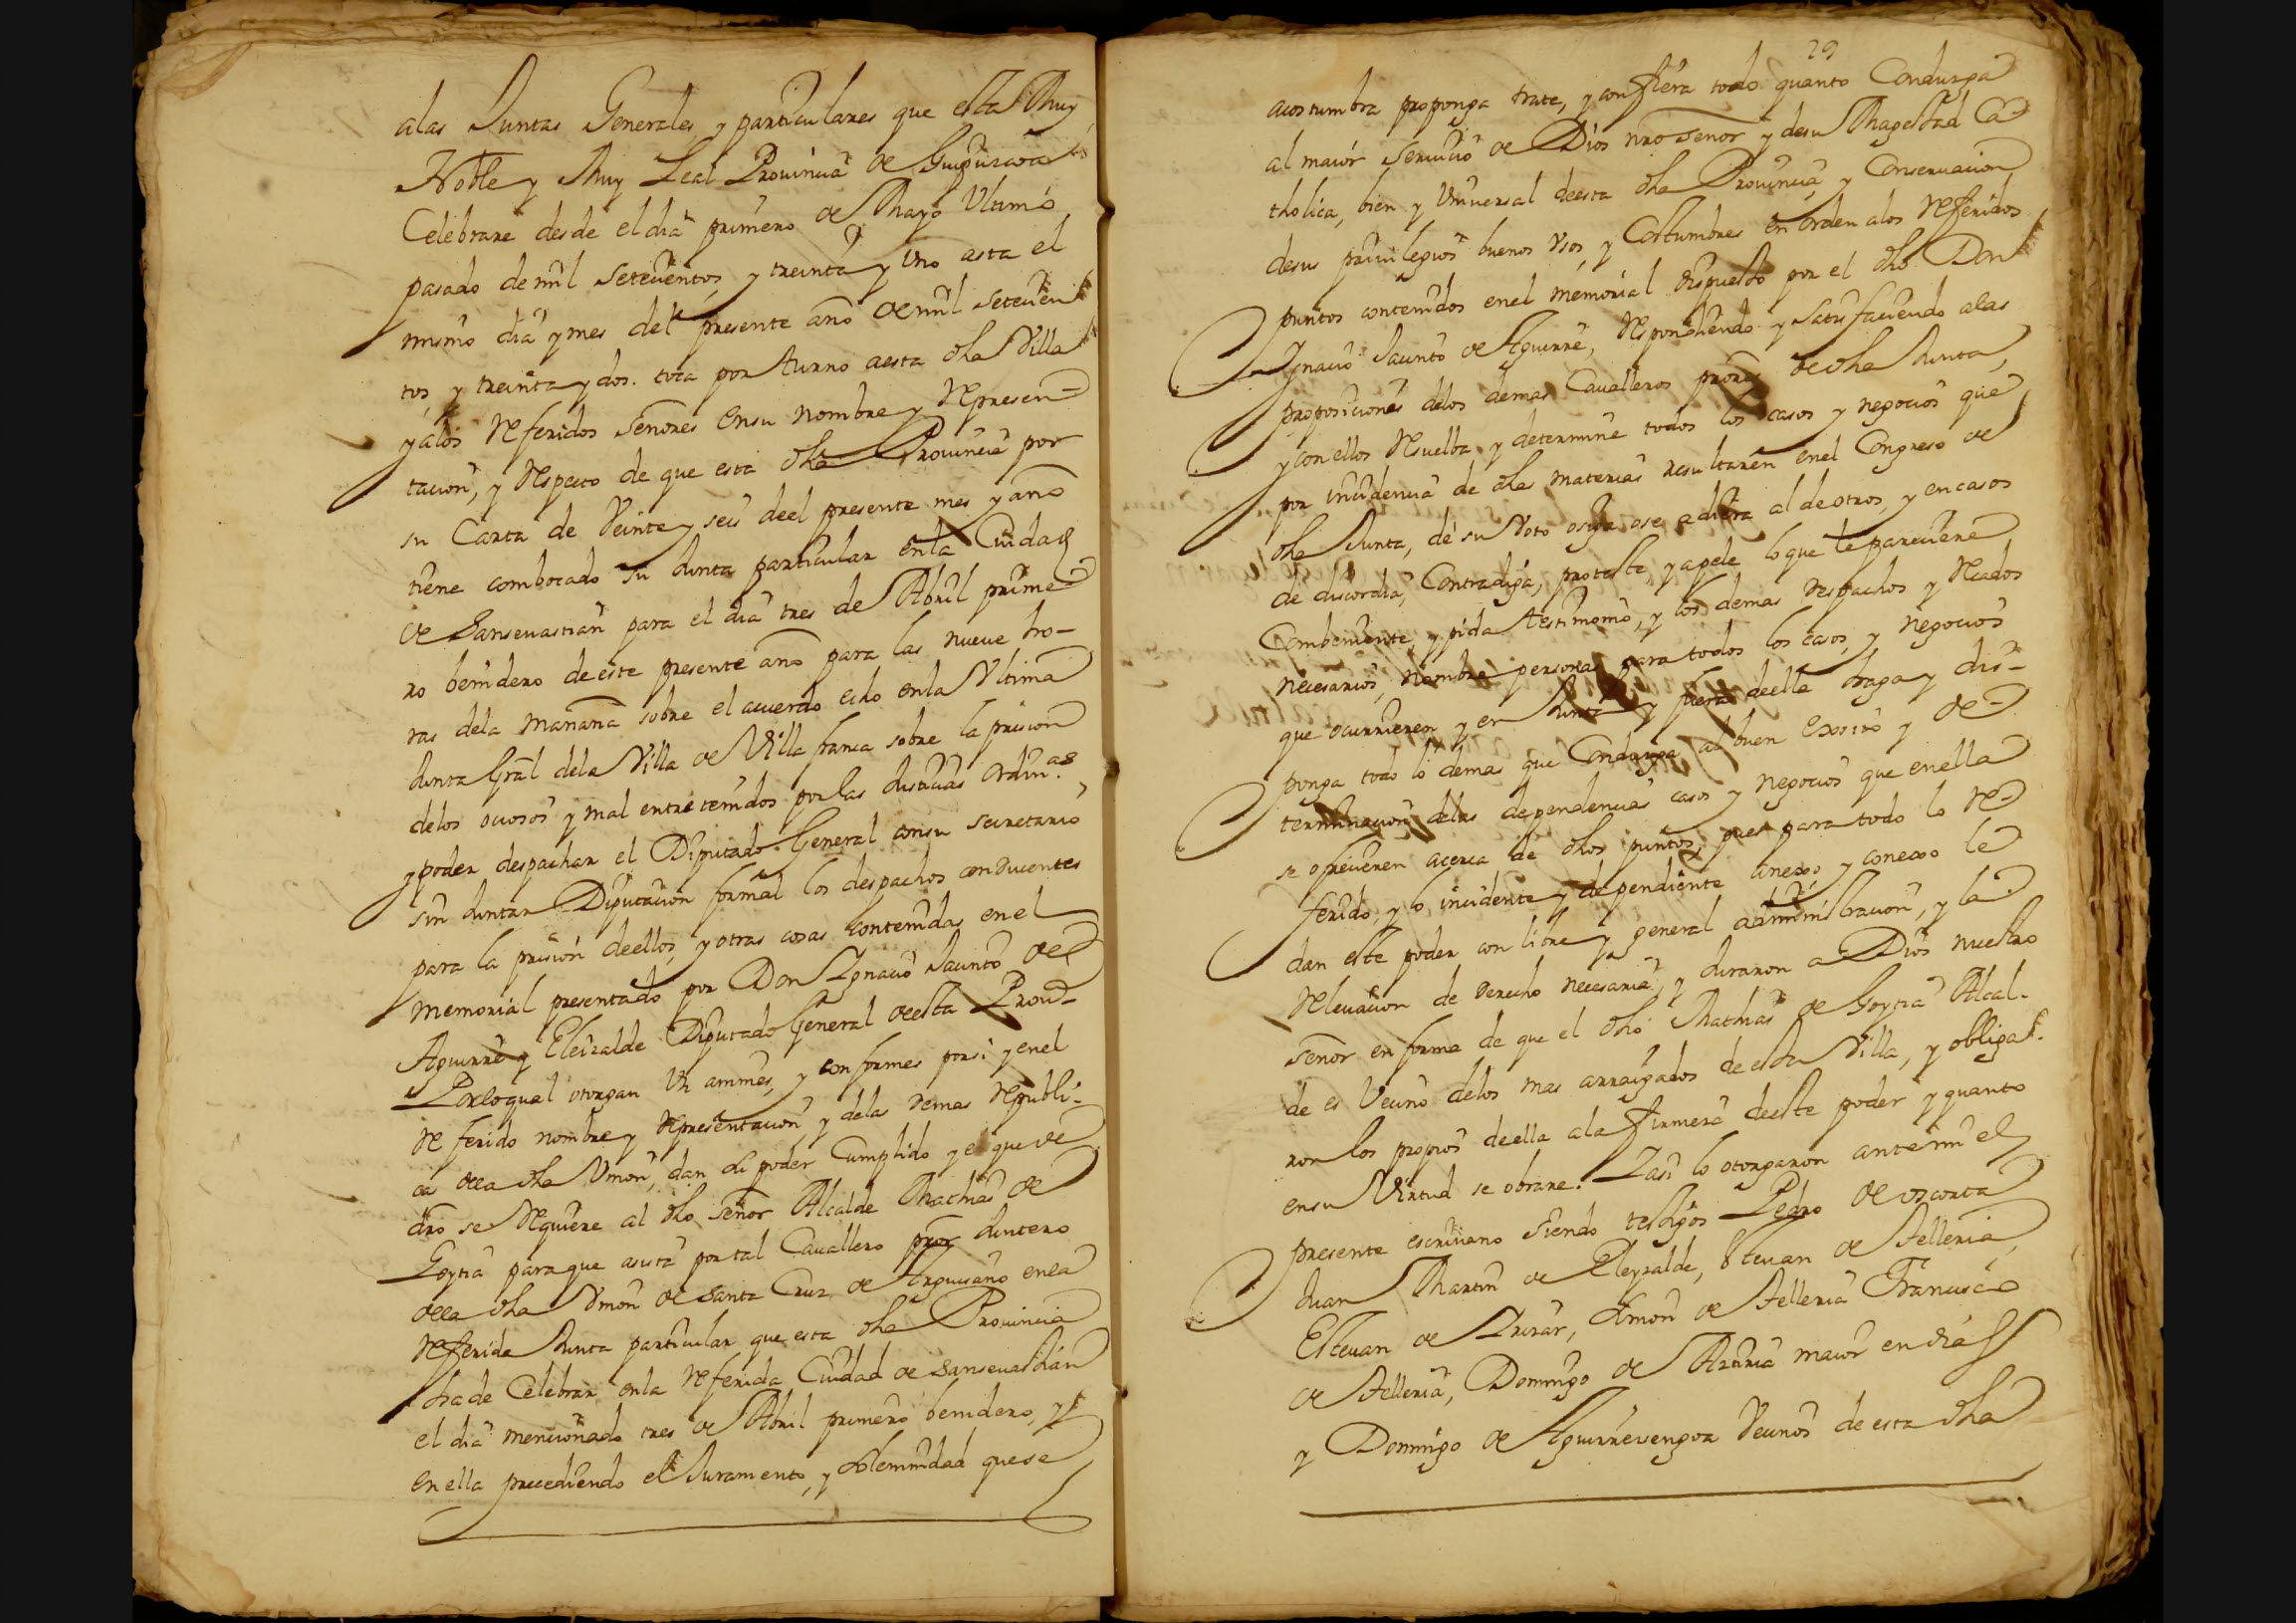 alas Juntas Generales y particulares que esta Muy
Noble y Muy Leal Prouincia de Guipuzcoa
Celebrare desde el dia primero de Mayo Ultimo
pasado de mil setecientos, y treinta y Uno asta el
mismo dia y mes del presente año de mil setecien
tos, y treinta y dos. toca por turno aesta dha Villa
yalos Referidos señores Ensu nombre y Represen
tacion, y Respecto de que esta dha Prouincia por
su Carta de Veinte y seis deel presente mes y año
tiene combocado su Junta particular en la Ciudad
de Sanseuastian para el dia tres de Abril prime
ro benidero de este presente año para las nueue ho-
ras dela mañana sobre el acuerdo echo enla Ultima
Junta Gral dela Villa de Villafranca sobre la prision
delos ociosos y mal entretenidos por las Justicias ordin.as
y poder despachar el Diputado General consu secretario
sin Juntar Diputacion formal los despachos conducentes
para la prision deellos, y otras cosas contenidas en el
memorial presentado por Don Ignacio Jacinto de
Aguirre y Eleizalde Diputado General deesta Prou.a
Porloqual otorgan Unanimes, y conformes porsi y enel
Referido nombre y Representacion, y delas demas Republi-
cas dela dha Union, dan su poder Cumplido y el que de
dro se Requiere al dho señor Alcalde Mathias de
Goytia para que asista por tal Cauallero pror Juntero
dela dha Union de Santa Cruz de Arguisano enla
Referida Junta particular que esta dha Prouincia
ha de Celebrar enla Referida Ciudad de Sanseuastian
el dia mencionado tres de Abril primero benidero, y
en ella precediendo el Juramento, y solemnidad que se
29
acostumbra proponga trate, y confiera todo quanto Conduzga
al maior seruicio de Dios nro señor y desu Magestad Ca
tholica, bien y Uniuersal deesta dha Prouincia, y Conseruacion
desus priuilegios buenos Usos, y Costumbres en orden alos Referidos
puntos contenidos enel memorial dispuesto por el dho Don
Ignacio Jacinto de Aguirre, Respondiendo y satisfaciendo alas
proposiciones delos demas Caualleros prores de dha Junta,
y con ellos Resuelba, y determine todos los casos y negocios que
por incidencia de dhas materias resultaren enel Congreso de
dha Junta, dé su Voto o siga o se adiera al de otros, y en casos
de discordia, Contradiga, proteste, y apele lo que le pareciere
Combeniente, y pida testimonio, y los demas despachos y Recados
necesarios, nombre personas para todos los casos, y negocios
que ocurrieren y en Junta y fuera deella haga y dis-
ponga todo lo demas que Conduzga al buen Exsito y de-
terminacion delas dependencias casos y negocios que enella
se ofrecieren acerca de dhos puntos, pues para todo lo Re-
ferido, y lo incidente y dependiente anexo y conexo le
dan este poder con libre y general administracion, y la
Releuacion de derecho necesaria, y Juraron a Dios nuestro
señor en forma de que el dho Mathias de Goytia Alcal-
de es Vecino delos mas arraigados de esta Villa, y obliga-
ron los propios deella ala firmeza deeste poder y quanto
ensu Virtud se obrare. Y asi lo otorgaron ante mi el
presente escriuano siendo testigos Pedro de
Juan Martin de Eleyzalde, Esteuan de Telleria,
Esteuan de Irizar, Simon de Telleria Francisco
de Telleria, Domingo de Arizria maior en dias
y Domingo de Aguirrezengoa Vecinos de esta dha